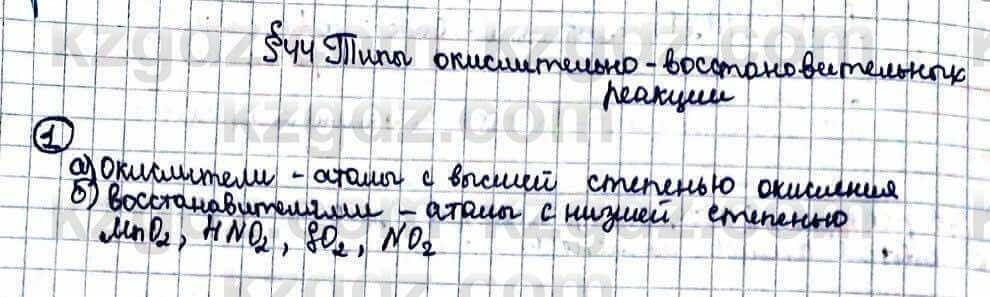 §44 Типы окислительно-восстановительных
реакции
1
а) Окислители - атомы с высшей степенью окисления
б) Восстанавителями - атомы с низшей степенью
MnO2, HNO2, SO2, NO2
kzgdz.com